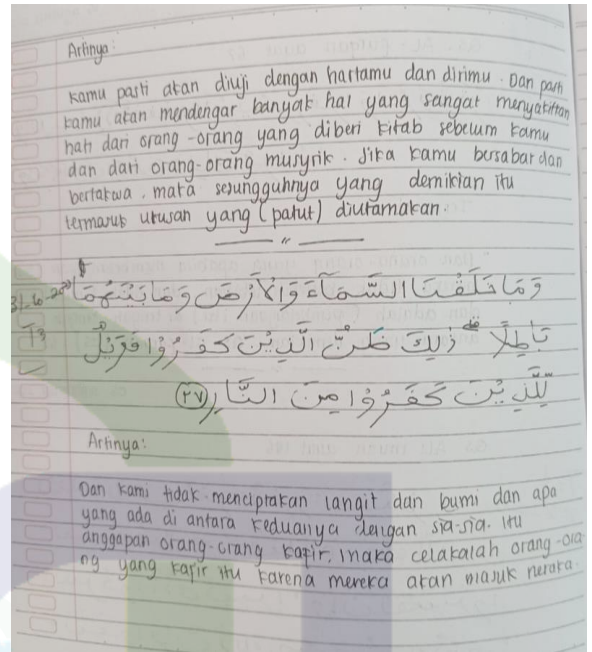 Artinya:
kamu pasti akan diuji dengan hartamu dan dirimu. Dan pasti
kamu akan mendengar banyak hal yang sangat menyakitkan
hati dari orang-orang yang diberi kitab sebelum kamu
dan dari orang-orang musyrik. Jika kamu bersabar dan
bertakwa, maka sesungguhnya yang demikian itu
termasuk urusan yang (patut) diutamakan.
وَمَا خَلَقْنَا السَّمَآءَ وَالْأَرْضَ وَمَا بَيْنَهُمَا
بَاطِلًا ۗ ذٰلِكَ ظَنُّ الَّذِيْنَ كَفَرُوْا فَوَيْلٌ
لِّلَّذِيْنَ كَفَرُوْا مِنَ النَّارِ (٢٧)
Artinya:
Dan kami tidak menciptakan langit dan bumi dan apa
yang ada di antara keduanya dengan sia-sia. Itu
anggapan orang-orang kafir, maka celakalah orang-ora
ng yang kafir itu karena mereka akan masuk neraka.